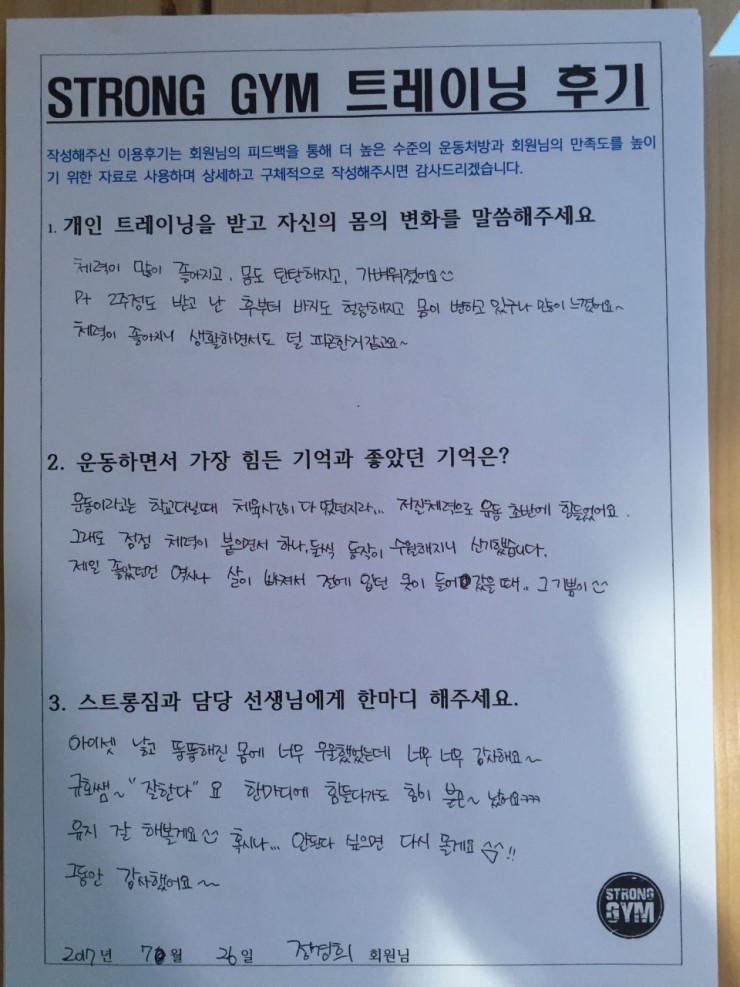 STRONG GYM 트레이닝 후기
작성해주신 이용후기는 회원님의 피드백을 통해 더 높은 수준의 운동처방과 회원님의 만족도를 높이
기 위한 자료로 사용하며 상세하고 구체적으로 작성해주시면 감사드리겠습니다.
1. 개인 트레이닝을 받고 자신의 몸의 변화를 말씀해주세요
체력이 많이 좋아지고, 몸도 탄탄해지고, 가벼워졌어요
Pt 2주정도 받고 난 후부터 바지도 헐렁해지고 몸이 변하고 있구나 많이 느꼈어요~
체력이 좋아지니 생활하면서도 덜 피곤한거같고요~
2. 운동하면서 가장 힘든 기억과 좋았던 기억은?
운동이라고는 학교다닐때 체육시간이 다 였던지라... 저질체력으로 운동 초반에 힘들었어요.
그래도 점점 체력이 붙으면서 하나, 둘씩 동작이 수월해지니 신기했습니다.
제일 좋았던건 역시나 살이 빠져서 전에 입던 옷이 들어갔을때.. 그 기쁨이
3. 스트롱짐과 담당 선생님에게 한마디 해주세요.
아이셋 낳고 뚱뚱해진 몸에 너무 우울했었는데 너무 너무 감사해요~
규화쌤~ "잘한다" 요 한마디에 힘들다가도 힘이 불끈~ 났어요ㅋㅋㅋ
유지 잘 해볼게요 혹시나... 안된다 싶으면 다시 올게요 ^^!!
그동안 감사했어요~
2017년 7월 26일 장경희 회원님
STRONG
GYM